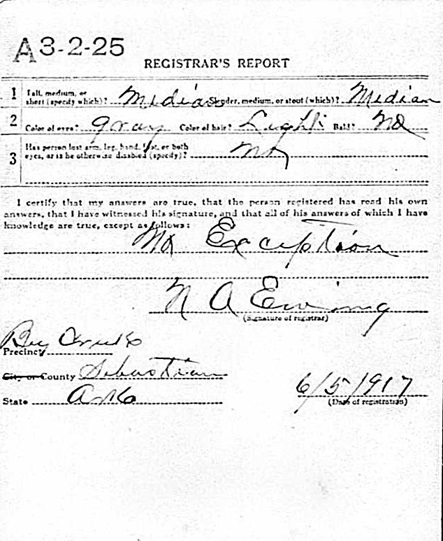 A 3-2-25
REGISTRAR'S REPORT
1 Tall, medium, or short (specify which)? Median Slender, medium, or stout (which)? Median
2 Color of eyes? gray Color of hair? Light Bald? No
3 Has person lost arm, leg, hand, foot, or both
eyes, or is he otherwise disabled (specify)? No
I certify that my answers are true, that the person registered has read his own
answers, that I have witnessed his signature, and that all of his answers of which I have
knowledge are true, except as follows:
No Exception
N A Ewing
(Signature of registrar)
Precinct Big Creek
City or County Sebastian
State Ark
6/5/1917
(Date of registration)